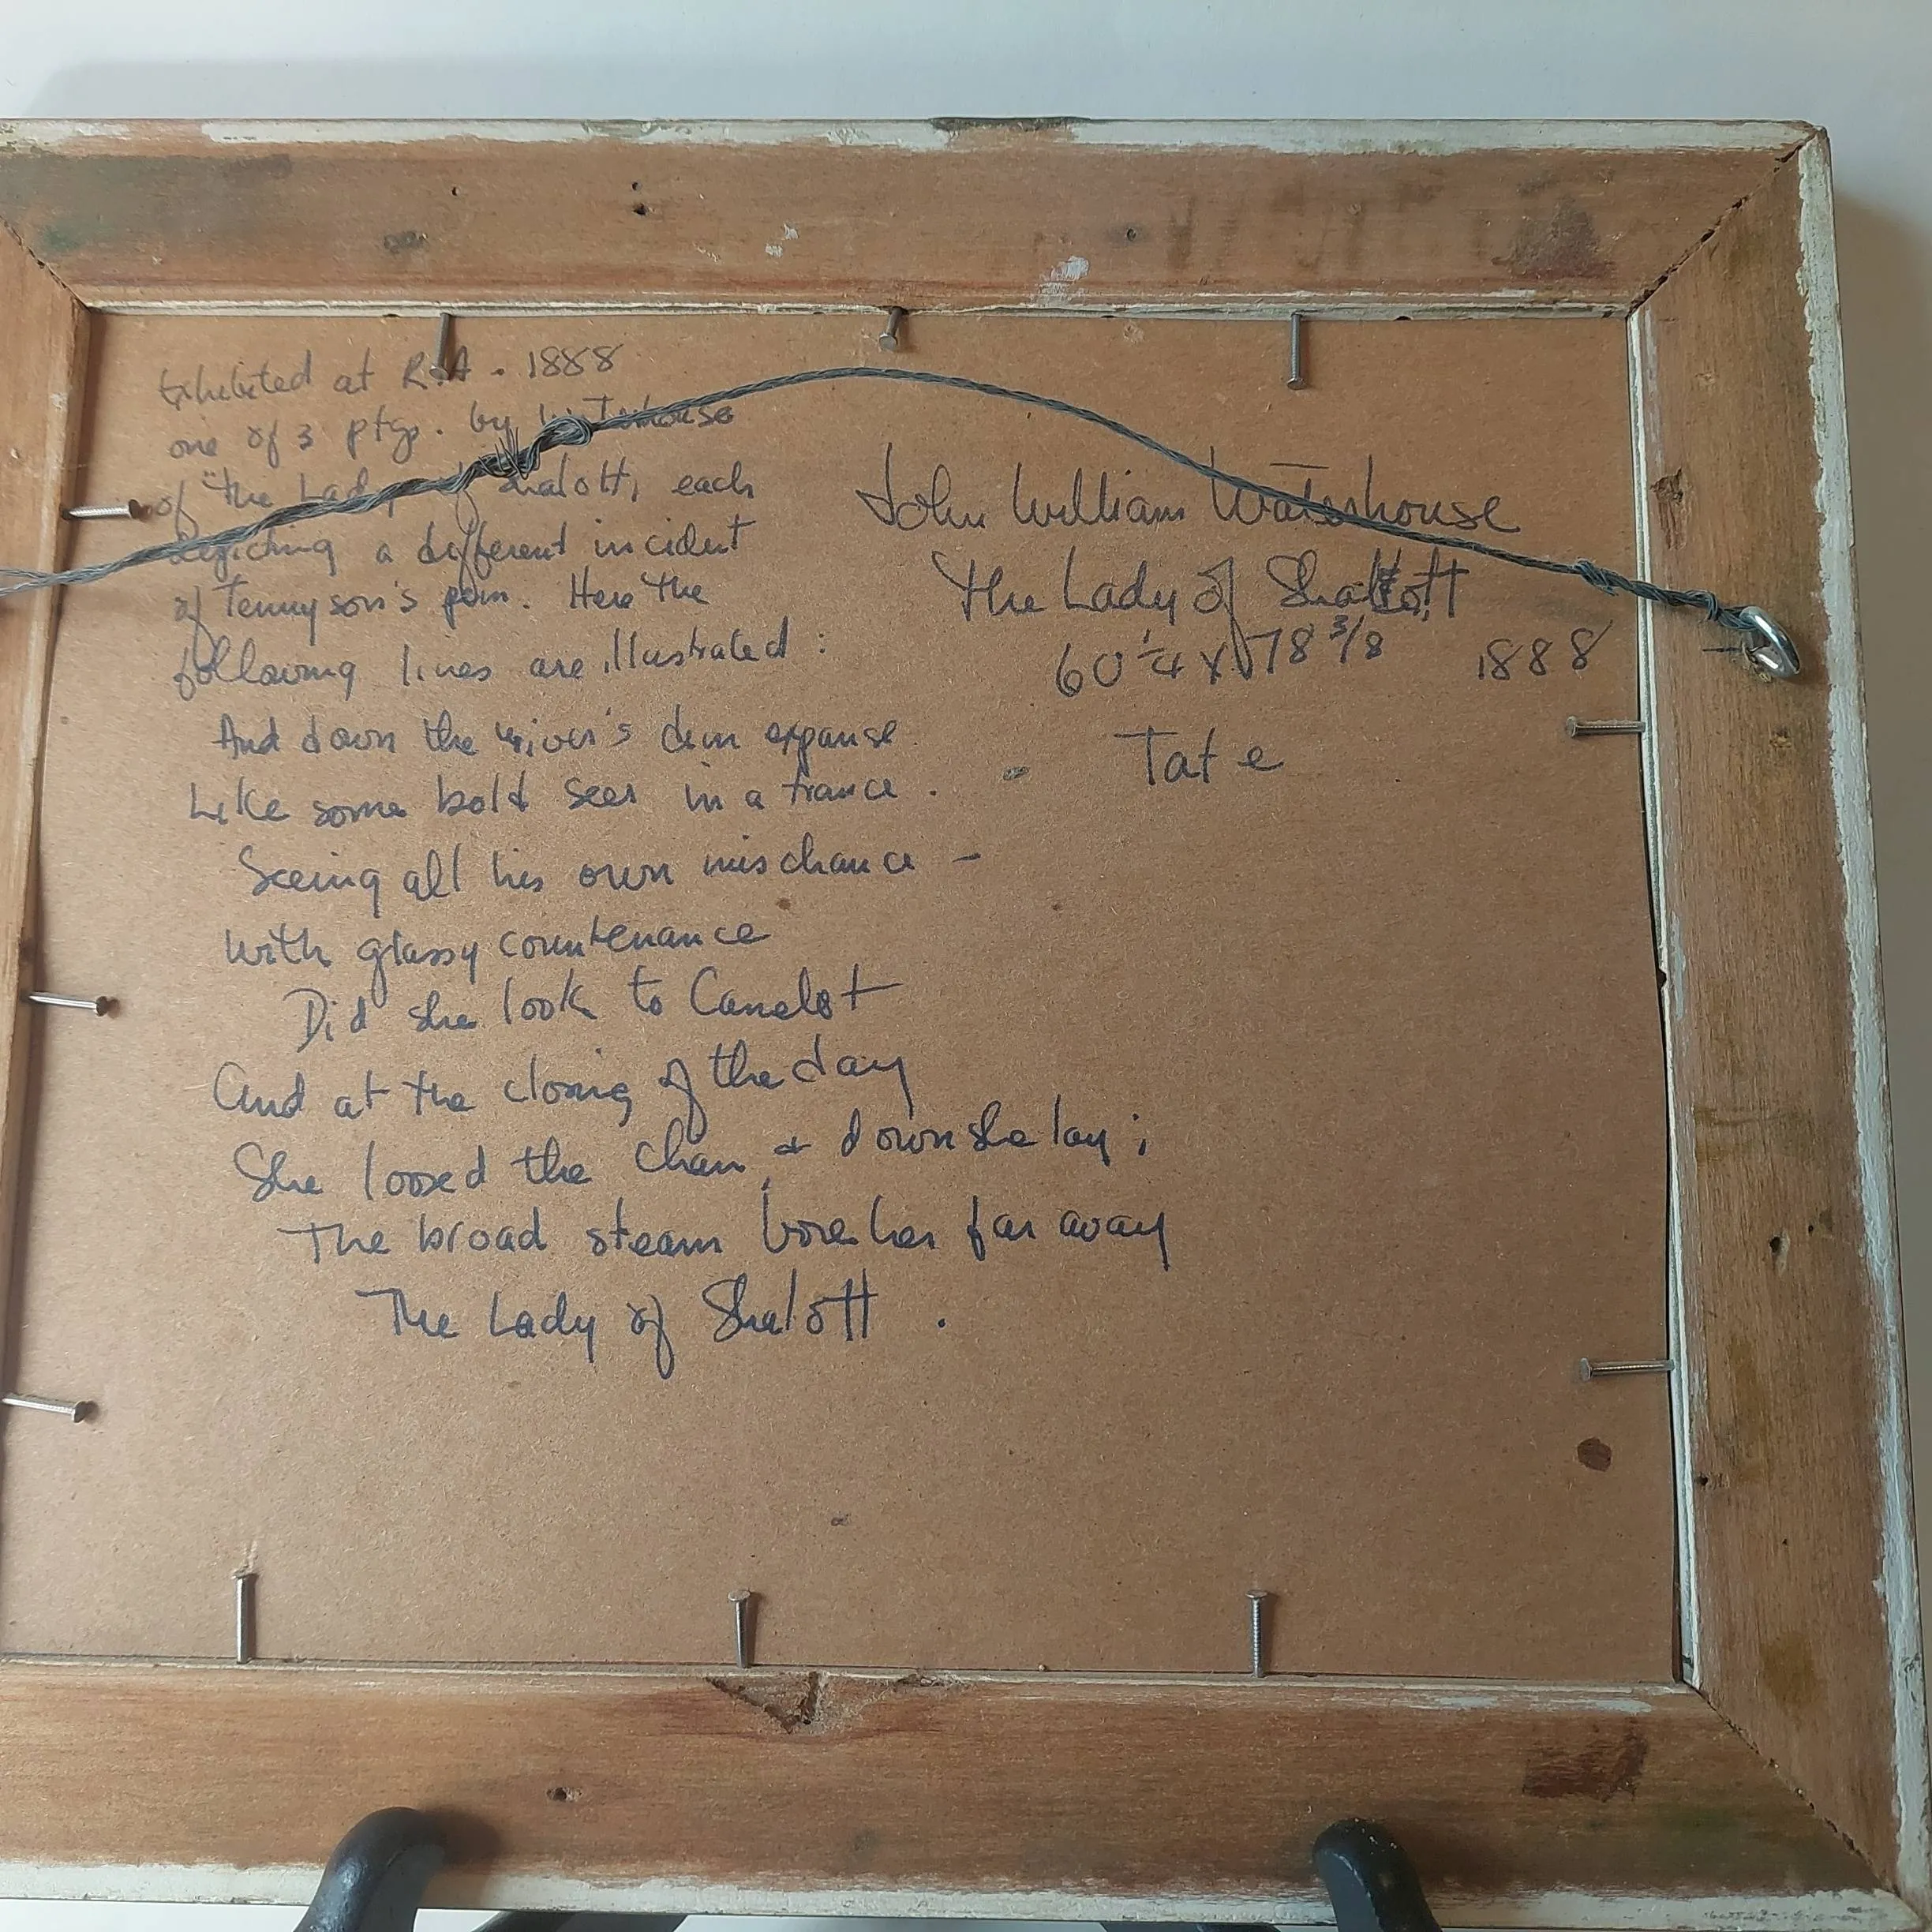 Exhibited at R.A. 1888
one of 3 ptgs. by Waterhouse
of "the Lady of Shalott, each
depicting a different incident
of Tennyson's poem. Here the
following lines are illustrated:
And down the river's dim expanse
Like some bold seer in a trance.
Seeing all his own mischance -
With glassy countenance
Did she look to Camelot
And at the closing of the day
She loosed the chain & down she lay;
The broad steam bore her far away
The Lady of Shalott.
John William Waterhouse
The Lady of Shallott
60 1/4 x 78 3/8 1888
Tate